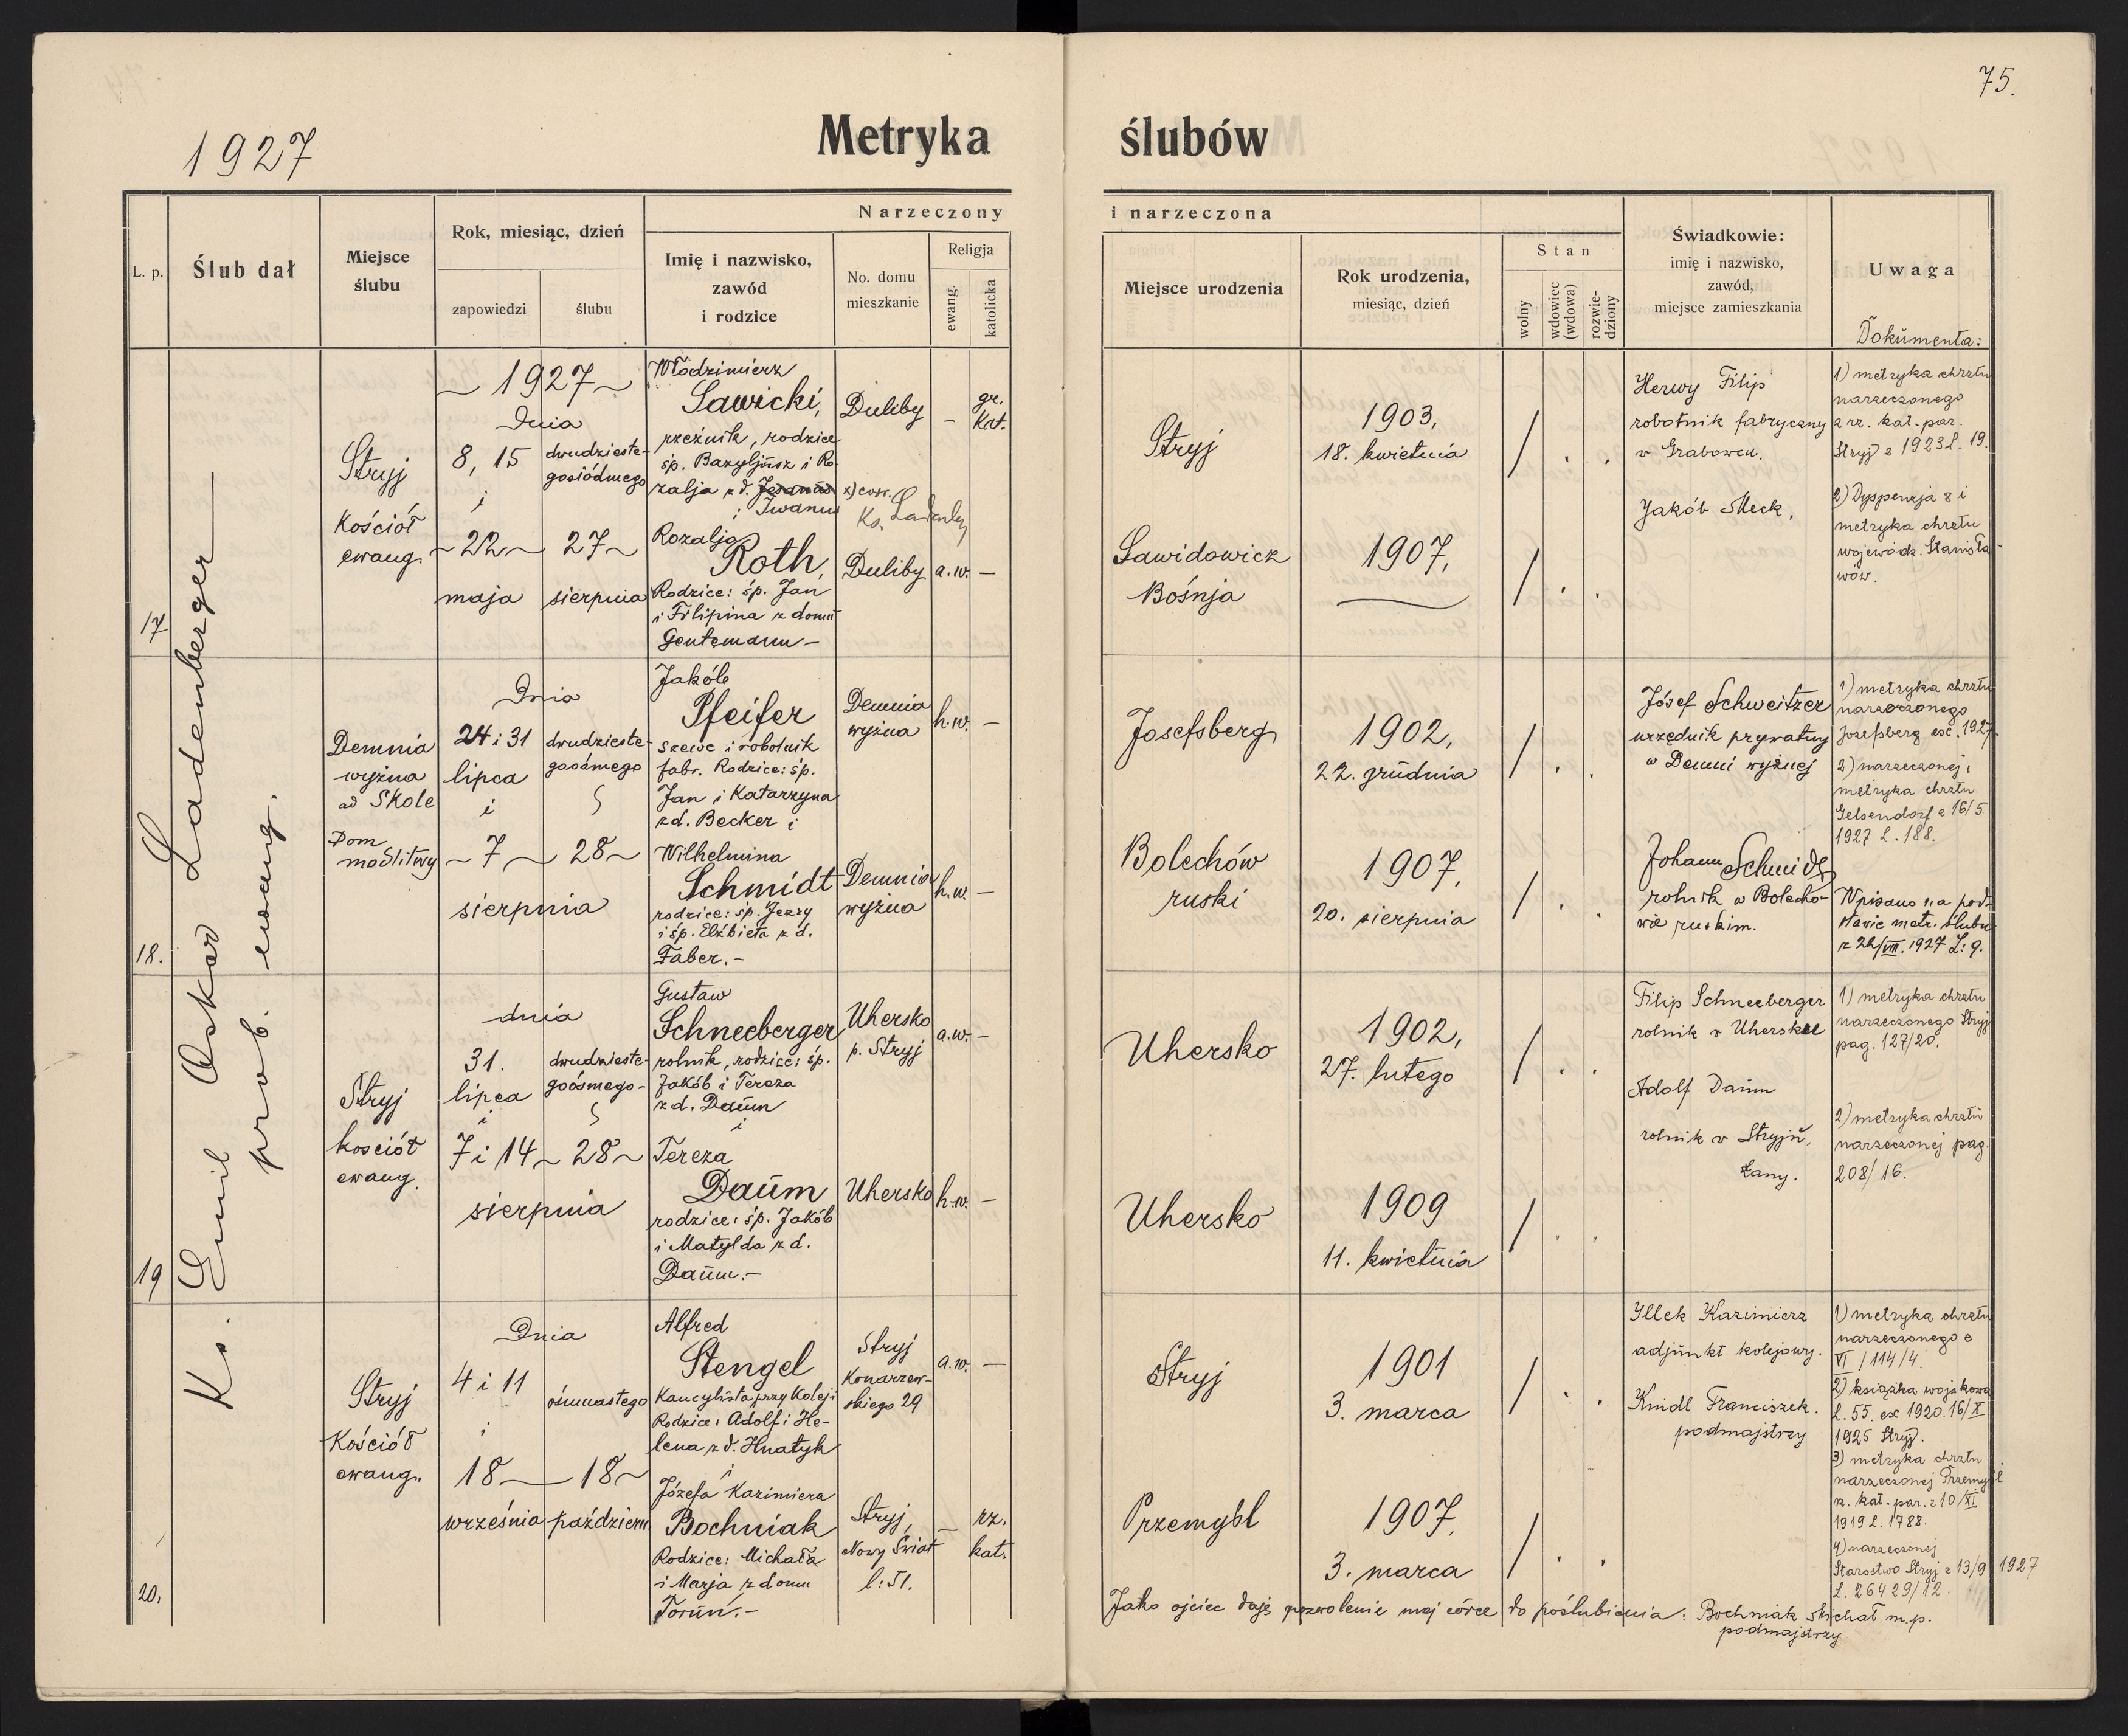 75.
1927
Metryka ślubów
Narzeczony i narzeczona
L. p.
Ślub dał
Miejsce
ślubu
Rok, miesiąc, dzień
zapowiedzi
ślubu
Imię i nazwisko,
zawód
i rodzice
No. domu
mieszkanie
Religja
ewang.
katolicka
Miejsce urodzenia
Rok urodzenia,
miesiąc, dzień
Stan
wolny
wdowiec
(wdowa)
rozwie-
dziony
Świadkowie:
imię i nazwisko,
zawód,
miejsce zamieszkania
Uwaga
Dokumenta:
Ks. Emil Oskar Ladenberger
prob. ewang.
17
Stryj
Kościół
ewang.
~ 1927 ~
Dnia
8, 15
i
~ 22 ~
maja
dwudzieste-
gosiódmego
27 ~
sierpnia
Włodzimierz
Sawicki,
rzeźnik, rodzice
śp. Bazyljusz i Ro-
zalja z d.
Iwanus
i
Rozalja
Roth,
Rodzice: śp. Jan
i Filipina z domu
Gentemann –
Duliby
x) corr.
Ks.
Duliby
–
gr.
kat.
a. w. –
Stryj
1903,
18. kwietnia
/ . .
Sawidowicz
Bośnja
1907,
/ . .
Herwy Filip
robotnik fabryczny
w Grabowcu.
Jakób Meck,
1) metryka chrztu
narzeczonego
z rz. kat. par.
Stryj z 1923 L. 19.
2) Dyspenzja 8 i
metryka chrztu
wojewódz. Stanisła-
wów.
18.
Demnia
wyżna
ad Skole
Dom
modlitwy
Dnia
24 i 31
lipca
i
~ 7 ~
dwudzieste-
goósmego
28 ~
sierpnia
Jakób
Pfeifer
szewc i robotnik
fabr. Rodzice: śp.
Jan i Katarzyna
z d. Becker i
Wilhelmina
Schmidt
rodzice: śp. Jerzy
i śp. Elżbieta z d.
Faber. –
Demnia
wyżna
Demnia
wyżna
h. w. –
h. w. –
Josefsberg
1902,
22. grudnia
/ . .
Bolechów
ruski
1907,
20. sierpnia
/ . .
Józef Schweitzer
urzędnik prywatny
w Demni wyżnej
Johann Schmidt
rolnik w Bolecho-
wie ruskim.
1) metryka chrztu
narzeczonego
Josefsberg esc. 1927.
2) narzeczonej i
metryka chrztu
Gelsendorf z 16/5
1927 L. 188.
Wpisano na pod-
stawie metr. ślubu
z 28/VIII. 1927 L: 9.
19
Stryj
kościół
ewang.
dnia
31.
lipca
i
7 i 14 ~
dwudzieste-
goósmego –
28 ~
sierpnia
Gustaw
Schneeberger
rolnik, rodzice: śp.
Jakób i Tereza
z d. Daum
i
Tereza
Daum
rodzice: śp. Jakób
i Matylda z d.
Daum. –
Uhersko
p. Stryj
Uhersko
a. w. –
h. w. –
Uhersko
1902,
27. lutego
/ . .
Uhersko
1909
11. kwietnia
/ . .
Filip Schneeberger
rolnik w Uhersku
Adolf Daum
rolnik w Stryju,
Łany.
1) metryka chrztu
narzeczonego Stryj
pag. 127/20.
2) metryka chrztu
narzeczonej pag.
208/16.
20.
Stryj
Kościół
ewang.
Dnia
4 i 11
i
18
września
ósmnastego
18 ~
październ
Alfred
Stengel
Kancylista przy Koleji
Rodzice: Adolf i He-
lena z d. Hnatyk
i
Józefa Kazimiera
Bochniak
Rodzice: Michała
i Marja z domu
Torun. –
Stryj
Konarzew-
skiego 29
Stryj,
Nowy Świat
l: 51.
a. w. –
–
rz.
kat.
Stryj
1901
3. marca
/ . .
Przemyśl
1907,
3. marca
/ . .
Illek Kazimierz
adjunkt kolejowy.
Kindl Franciszek.
podmajstrzy
1) metryka chrztu
narzeczonego e
VI / 114/4.
2) książka wojskowa
L. 55. ex 1920. 16/X
1925 Stryj.
3) metryka chrztu
narzeczonej Przemyśl
rz. kat. par. z 10/XI
1919 L. 1788.
4) narzeczonej
Starostwo Stryj z 13/9 1927
L. 26429/12.
Jako ojciec daję pozwolenie mej córce do poślubienia: Bochniak Michał m.p.
podmajstrzy